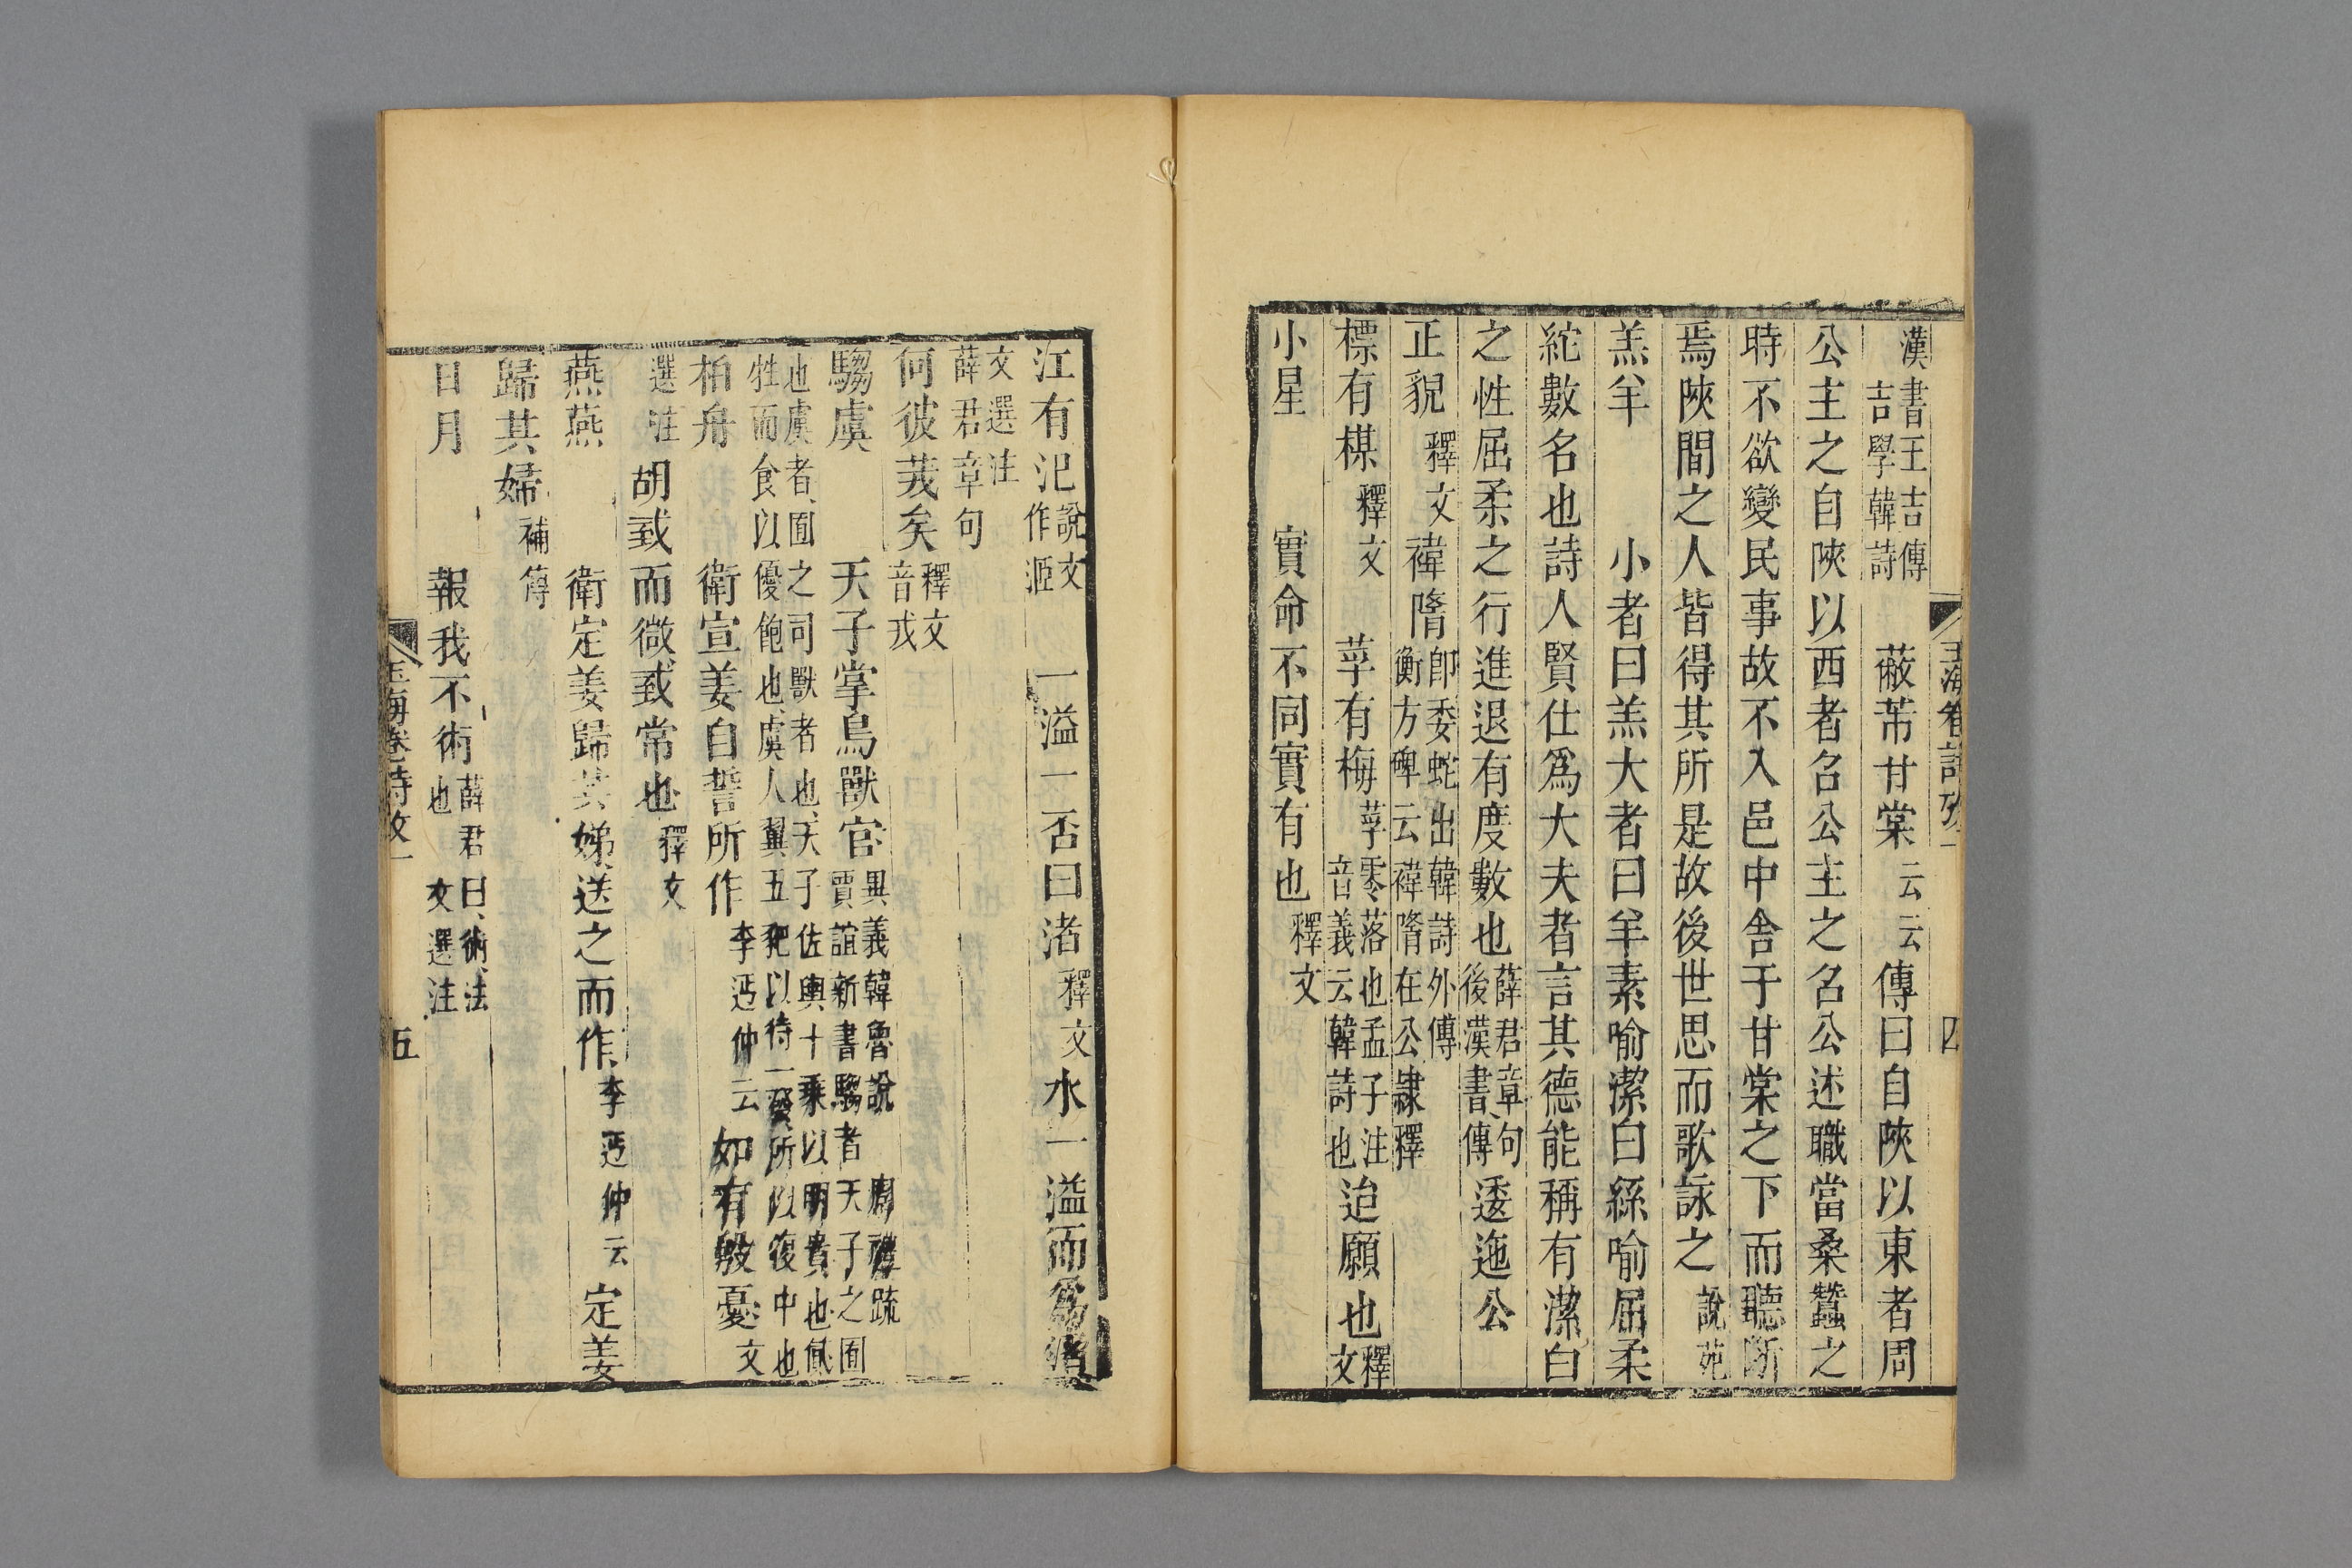 玉海卷詩攷一 四
漢書王吉傳吉學韓詩 蔽芾甘棠云云傳曰自陝以東者周
公主之自陝以西者召公主之召公述職當桑蠶之
時不欲變民事故不入邑中舍于甘棠之下而聽斷
焉陝間之人皆得其所是故後世思而歌詠之說苑
羔羊 小者曰羔大者曰羊素喻潔白絲喻屈柔
紽數名也詩人賢仕爲大夫者言其德能稱有潔白
之性屈柔之行進退有度數也薛君章句後漢書傳逶迤公
正貌釋文禕隋卽委蛇出韓詩外傳衡方碑云禕隋在公隷釋
標有楳釋文 莩有梅莩零落也孟子注音義云韓詩也迨願也釋文
小星 實命不同實有也釋文
江有汜說文作洍 一溢一否曰渚釋文水一溢而爲渚
文選注薛君章句
何彼茙矣釋文音戎
騶虞 天子掌鳥獸官異義韓魯說 周禮疏賈誼新書騶者天子之囿
也虞者囿之司獸者也天子佐輿十乘以明貴也貳牲而食以優飽也虞人翼五豝以待一發所以復中也
柏舟 衛宣姜自誓所作李迃仲云如有殷憂文
選注胡𢧜而微𢧜常也釋文
燕燕 衛定姜歸其娣送之而作李迃仲云定姜
歸其婦補傳
日月 報我不術薛君曰術法也 文選注
玉海卷詩攷一 五